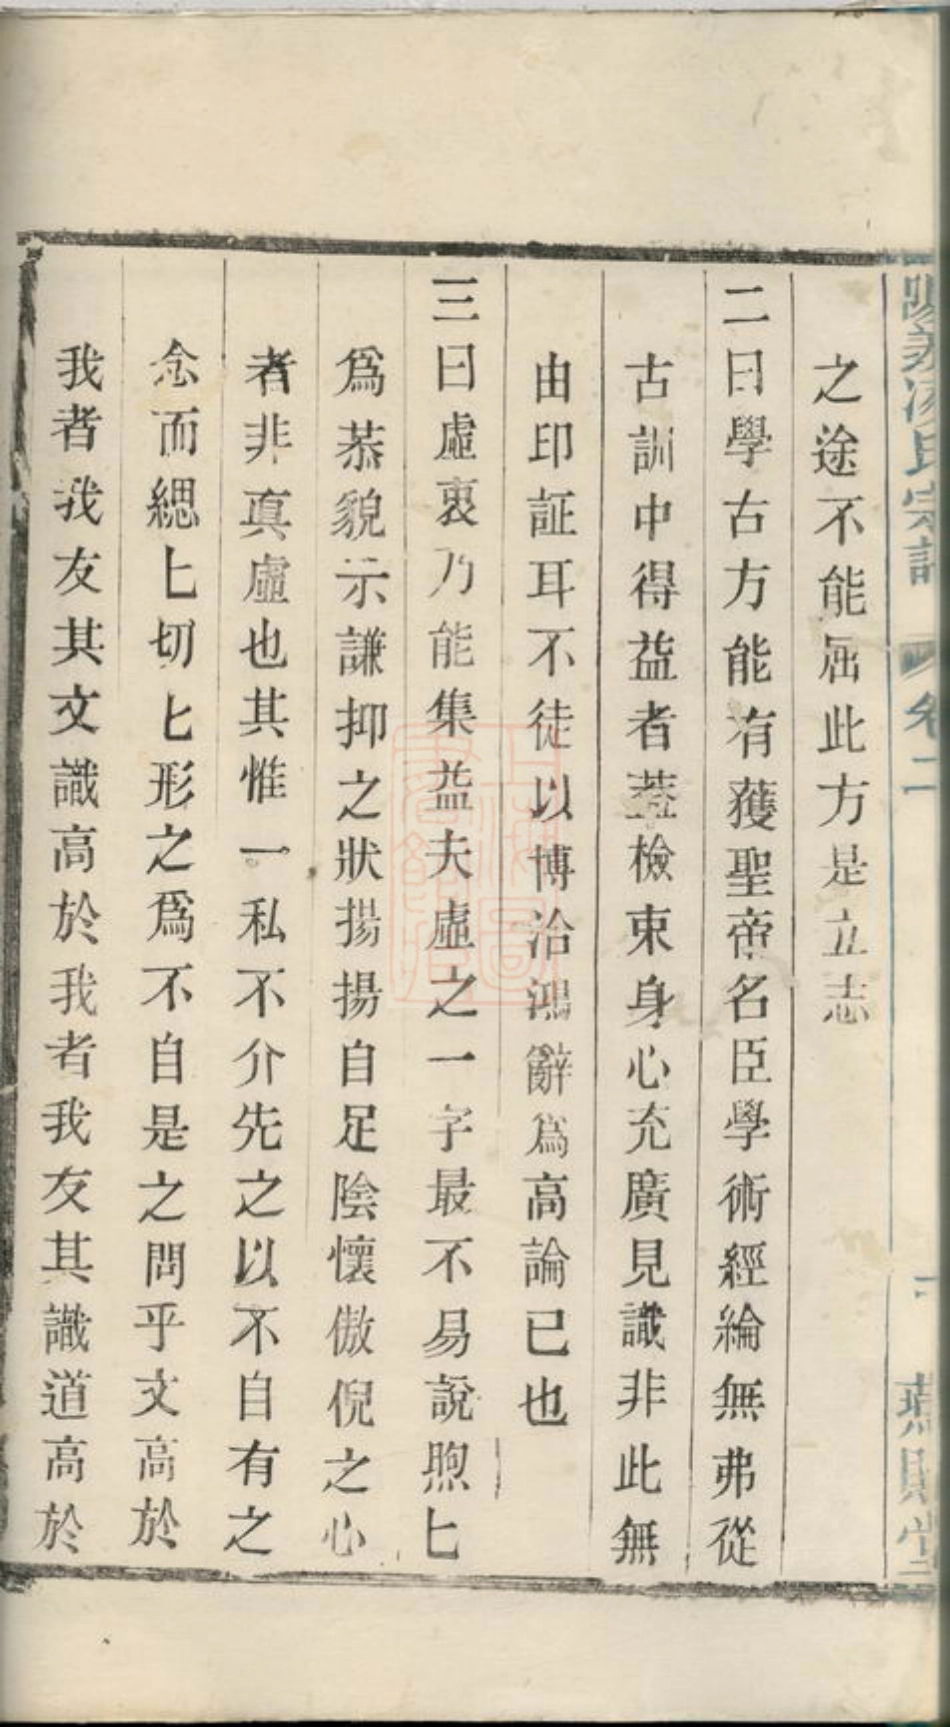 宗譜 卷二
之途不能屈此方是立志
二曰學古方能有獲聖帝名臣學術經綸無弗從
古訓中得益者葢檢束身心充廣見識非此無
由印証耳不徒以博洽鴻辭爲高論已也
三曰虛衷乃能集益夫虛之一字最不易說煦匕
爲恭貌示謙抑之狀揚揚自足陰懷傲倪之心
者非真虛也其惟一私不介先之以不自有之
念而緦匕切匕形之爲不自是之問乎文高於
我者我友其文識高於我者我友其識道高於